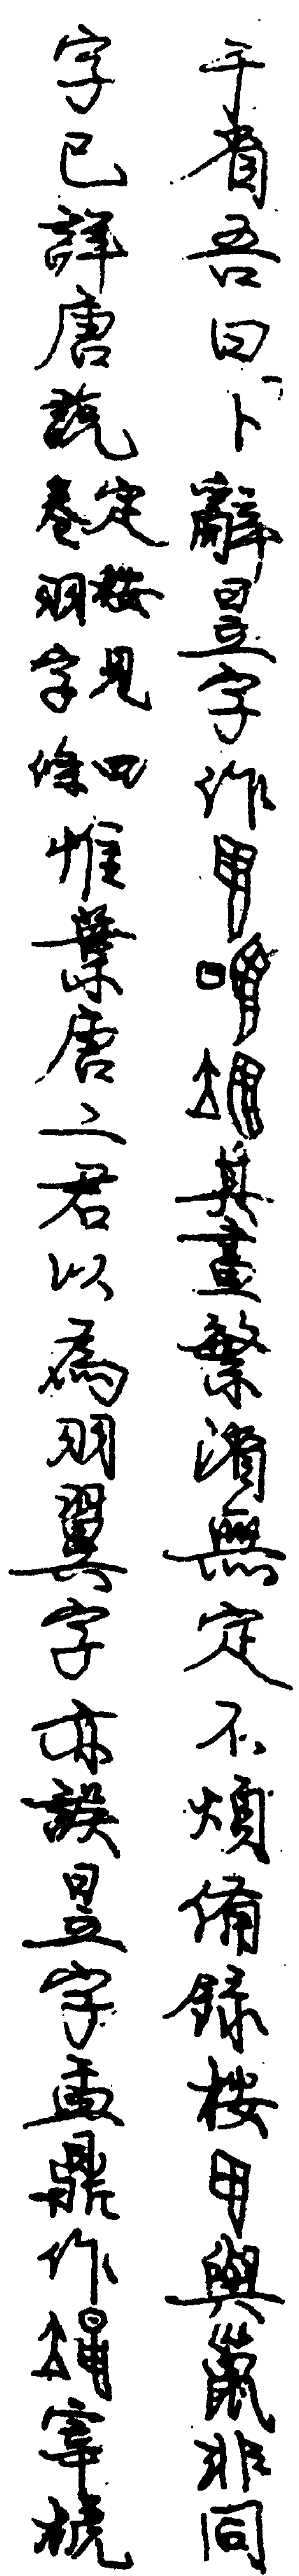 于省吾曰卜辭昱字作其畫繁渻無定不煩備錄按甲與巤非同
字已詳唐說定按見四卷羽字條惟葉唐二君以爲羽翼字亦誤昱字盂鼎作宰椃